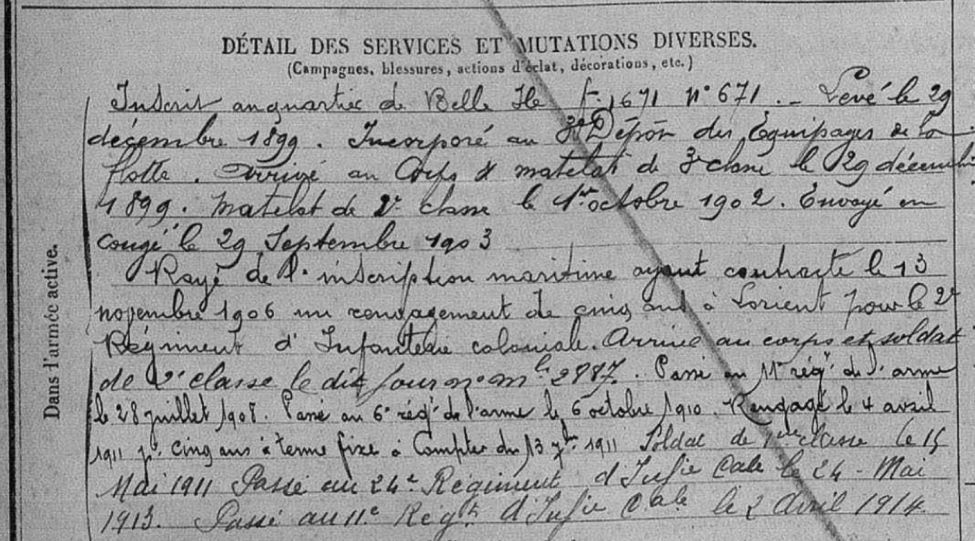 DÉTAIL DES SERVICES ET MUTATIONS DIVERSES.
(Campagnes, blessures, actions d'éclat, décorations, etc.)
Dans l'armée active.
Inscrit au quartier de Belle Ile f. 1671 n° 671. — Levé le 29
décembre 1899. Incorporé au Dépôt des Équipages de la
flotte. Arrivé au Corps & matelot de 3e classe le 29 décembre
1899. Matelot de 2e classe le 1er octobre 1902. Envoyé en
congé le 29 Septembre 1903
Rayé de l'inscription maritime ayant contracté le 13
novembre 1906 un rengagement de cinq ans à Lorient pour le 2e
Régiment d'Infanterie coloniale. Arrivé au corps et soldat
de 2e classe le dit jour n° mle 2887. Passé au 11e régt de l'arme
le 28 juillet 1908. Passé au 6e régt de l'arme le 6 octobre 1910. Rengagé le 4 avril
1911 pr cinq ans à terme fixe à Compter du 13 9bre 1911 Soldat de 1ère classe le 15
Mai 1911 Passé au 24e Régiment d'Infie Cale le 24 - Mai
1913. Passé au 11e Régt d'Infie Cale le 2 Avril 1914.